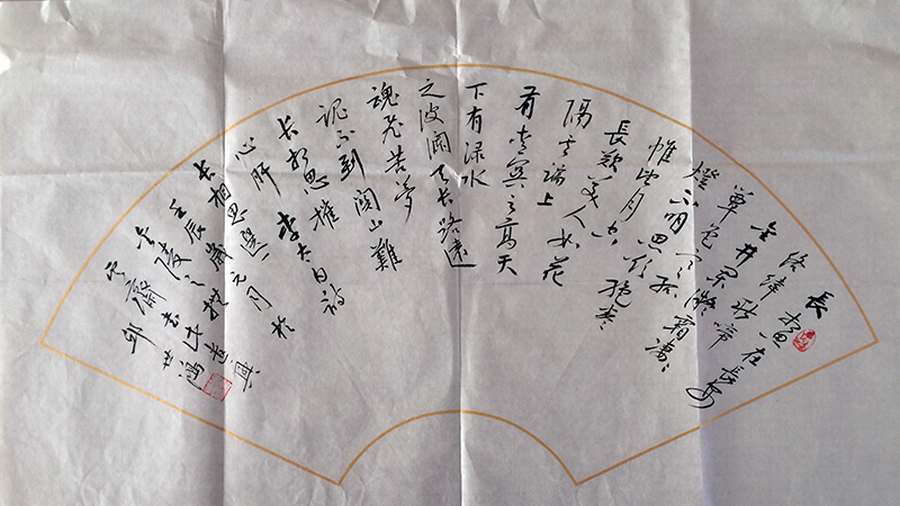 長相思在長安
絡緯秋啼
金井闌微霜凄凄
簟色寒孤
燈不明思欲絕卷
帷望月空
長歎美人如花
隔雲端上
有青冥之高天
下有淥水
之波瀾天長路遠
魂飛苦夢
魂不到關山難
長相思摧
心肝 李太白詩
長相思選一 元月於
壬辰歲
金陵之
齋 邱世鴻